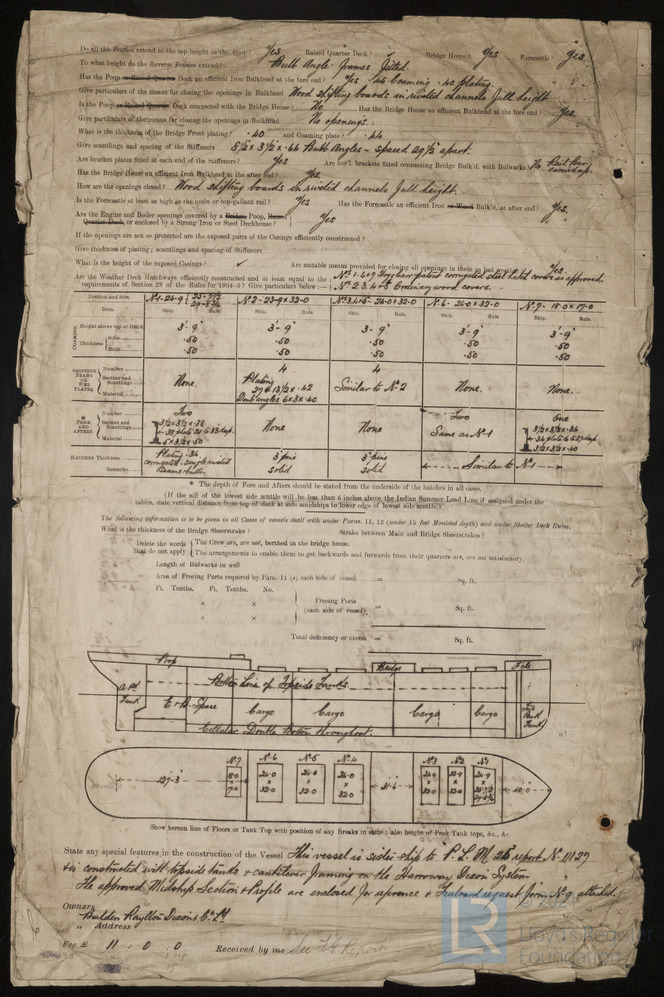 Do all the Frames extend to the top height in the Poop? Yes Raised Quarter Deck? Bridge House? Yes Forecastle? Yes.
To what height do the Reverse Frames extend? Bulb Angle Frames fitted.
Has the Poop or Raised Quarter Deck an efficient Iron Bulkhead at the fore end? Yes .44 Coaming .40 plating.
Give particulars of the means for closing the openings in Bulkhead Wood shifting boards in riveted channels full height
Is the Poop or Raised Quarter Deck connected with the Bridge House? No Has the Bridge House an efficient Bulkhead at the fore end? Yes.
Give particulars of the means for closing the openings in Bulkhead No openings.
What is the thickness of the Bridge Front plating? .40 and Coaming plate? .44
Give scantlings and spacing of the Stiffeners 5½ x 3½ x .44 Bulb Angles - spaced 29½ apart.
Are bracket plates fitted at each end of the Stiffeners? Yes Are hor'l. brackets fitted connecting Bridge Bulk'd. with Bulwarks? No
Has the Bridge House an efficient Iron Bulkhead at the after end? Yes.
How are the openings closed? Wood shifting boards in riveted channels full height.
Is the Forecastle at least as high as the main or top-gallant rail? Yes Has the Forecastle an efficient Iron or Wood Bulk'd, at after end? Yes.
Are the Engine and Boiler openings covered by a Bridge, Poop, Raised
Quarter Deck, or enclosed by a Strong Iron or Steel Deckhouse? Yes
If the openings are not so protected are the exposed parts of the Casings efficiently constructed?
Give thickness of plating; scantlings and spacing of Stiffeners
What is the height of the exposed Casings? ✓ Are suitable means provided for closing all openings in them in bad weather? Yes.
Are the Weather Deck Hatchways efficiently constructed and at least equal to the requirements of Section 28 of the Rules for 1904-5? Give particulars below:—
Nos 1.6&7 patent corrugated steel hatch covers as approved.
Nos 2.3.4&5 Ordinary wood covers.
Position and Size. No 1 - 24-9 x No 2 - 23-9 x 32-0 No 3,4&5 - 24-0 x 32-0 No 6 - 24-0 x 32-0 No 7 - 18-0 x 17-0
Item. Ship. Rule. Ship. Rule. Ship. Rule. Ship. Rule. Ship. Rule.
COAMING Height above top of Deck 3'-9" 3'-9" 3'-9" 3'-9" 3'-9"
Thickness Sides .50 .50 .50 .50 .50
Ends .50 .50 .50 .50 .50
SHIFTING BEAMS OR WEB PLATES Number 4 4
Section and Scantlings None. Plating Similar to No 2 None. None.
Material Doub angles 6 x 3 x .40
* FORE AND AFTERS Number Two Two One
Section and Scantlings 3½ x 3½ x .38 None None Same as No 1 3½ x 3½ x .34
Material 3½ x 3½ x .40
HATCHES Thickness Plating .34 3" pine 3" pine Similar to No 1
Remarks corrugated - single riveted solid solid
* The depth of Fore and Afters should be stated from the underside of the hatches in all cases.
(If the sill of the lowest side scuttle will be less than 6 inches above the Indian Summer Load Line if assigned under the
tables, state vertical distance from top of deck at side amidships to lower edge of lowest side scuttle.)
The following information is to be given in all Cases of vessels dealt with under Paras. 11, 12 (under 15 feet Moulded depth) and under Shelter Deck Rules.
What is the thickness of the Bridge Sheerstrake? Strake between Main and Bridge Sheerstrakes?
Delete the words that do not apply { The Crew are, are not, berthed in the bridge house.
The arrangements to enable them to get backwards and forwards from their quarters are, are not satisfactory.
Length of Bulwarks in well
Area of Freeing Ports required by Para. 11 (e) each side of vessel = Sq. ft.
Ft. Tenths. Ft. Tenths. No.
× × Freeing Ports (each side of vessel) = Sq. ft.
× ×
Total deficiency or excess = Sq. ft.
Poop Bridge F'cle
Bottom Line of Topside Tanks.
A.Pk Tank E & B. Space Cargo Cargo Cargo Cargo Fore Peak Tank
Cellular Double Bottom throughout.
No 7 No 6 No 5 No 4 No 3 No 2 No 1
127-3 18-0 x 17-0 24-0 x 32-0 24-0 x 32-0 24-0 x 32-0 31-6 24-0 x 32-0 23-9 x 32-0 24-9 x
Show hereon line of Floors or Tank Top with position of any Breaks in same; also height of Peak Tank tops, &c., &c.
State any special features in the construction of the Vessel This vessel is sister ship to P. L. M. 26 report No 11127
& is constructed with topside tanks & cantilever framing on the Harroway Dixon System
The approved Midship Section & Profile are enclosed for reference & Freeboard request form No 9 attached.
Owners
Builders Raylton Dixon & Co Ld
" Address
Fee £ 11 : 0 : 0 Received by me
LR
Lloyd's Register
Foundation